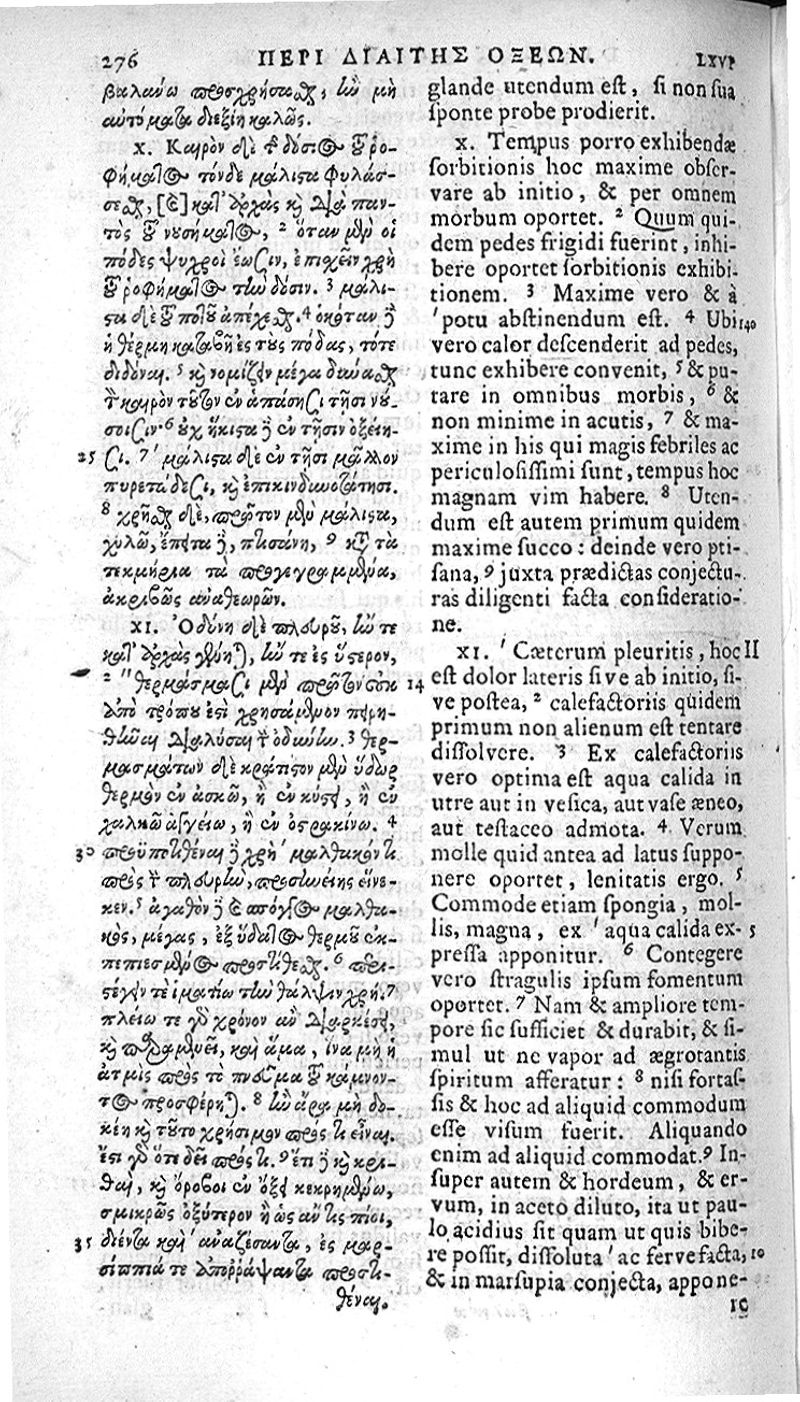 276 ΠΕΡΙ ΔΙΑΙΤΗΣ ΟΞΕΩΝ. LXVI
βαλάνῳ προσχρήσασθαι, ἢν μὴ
αὐτόματα διεξίῃ καλῶς.
X. Καιρὸν δὲ τῆς δόσιος τοῦ ῥο-
φήματος τόνδε μάλιστα φυλάσ-
σεσθαι, [τε] κατ' ἀρχὰς καὶ διὰ παν-
τὸς τοῦ νουσήματος, ² ὅταν μὲν οἱ
πόδες ψυχροὶ ἔωσιν, ἐπισχεῖν χρὴ
τοῦ ῥοφήματος τὴν δόσιν. ³ μάλι-
στα δὲ τοῦ ποτοῦ ἀπέχεσθαι. ⁴ ὁκόταν δὲ
ἡ θέρμη καταβῇ ἐς τοὺς πόδας, τότε
διδόναι. ⁵ καὶ νομίζειν μέγα δύνασθαι
τὸν καιρὸν τοῦτον ἐν ἁπάσῃσι τῇσι νού-
σοισιν· ⁶ οὐχ ἥκιστα δὲ ἐν τῇσιν ὀξείῃ-
25 σι. ⁷ ʹ μάλιστα δὲ ἐν τῇσι μᾶλλον
πυρετώδεσι, καὶ ἐπικινδυνοτάτῃσι.
⁸ χρῆσθαι δὲ, πρῶτον μὲν μάλιστα,
χυλῷ, ἔπειτα δὲ, πτισάνῃ, ⁹ κατὰ τὰ
τεκμήρια τὰ προγεγραμμένα,
ἀκριβῶς ἀναθεωρῶν.
XI. Ὀδύνη δὲ πλευροῦ, ἤν τε
κατ' ἀρχὰς γένηται, ἤν τε ἐς ὕστερον,
² ʺ θερμάσμασι μὲν πρῶτον οὐκ 14
ἀπὸ τρόπου ἐστὶ χρησάμενον πειρη-
θῆναι διαλῦσαι τὴν ὀδύνην. ³ θερ-
μασμάτων δὲ κράτιστον μὲν ὕδωρ
θερμὸν ἐν ἀσκῷ, ἢ ἐν κύστει, ἢ ἐν
χαλκῷ ἀγγείῳ, ἢ ἐν ὀστρακίνῳ. ⁴
30 προϋποτιθέναι δὲ χρὴ ʹ μαλθακόν τι
πρὸς τὴν πλευρὴν, προσηνείης εἵνε-
κεν. ⁵ ἀγαθὸν δὲ καὶ σπόγγος μαλθα-
κὸς, μέγας, ἐξ ὕδατος θερμοῦ ἐκ-
πεπιεσμένος προστίθεσθαι. ⁶ περι-
στέγειν τε ἱματίῳ τὴν θάλψιν χρή. ⁷
πλείω τε γὰρ χρόνον ἂν διαρκέσει,
καὶ παραμενεῖ, καὶ ἅμα, ἵνα μὴ ἡ
ἀτμὶς πρὸς τὸ πνεῦμα τοῦ κάμνον-
τος προσφέρηται. ⁸ ἢν ἄρα μὴ δο-
κέῃ καὶ τοῦτο χρήσιμον πρός τι εἶναι.
ἔστι γὰρ ὅτι δεῖ πρός τι. ⁹ ἔτι δὲ καὶ κρι-
θαὶ, καὶ ὄροβοι ἐν ὄξει κεκρημένῳ,
σμικρῶς ὀξύτερον ἢ ὡς ἄν τις πίοι,
35 διέντα καὶ ʹ ἀναζέσαντα, ἐς μαρ-
σίππιά τε ἀποῤῥάψαντα προστι-
θέναι.
glande utendum est, si non sua
sponte probe prodierit.
X. Tempus porro exhibendæ
sorbitionis hoc maxime obser-
vare ab initio, & per omnem
morbum oportet. ² Quum qui-
dem pedes frigidi fuerint, inhi-
bere oportet sorbitionis exhibi-
tionem. ³ Maxime vero & à
ʹ potu abstinendum est. ⁴ Ubi 140
vero calor descenderit ad pedes,
tunc exhibere convenit, ⁵ & pu-
tare in omnibus morbis, ⁶ &
non minime in acutis, ⁷ & ma-
xime in his qui magis febriles ac
periculosissimi sunt, tempus hoc
magnam vim habere. ⁸ Uten-
dum est autem primum quidem
maxime succo: deinde vero pti-
sana, ⁹ juxta prædictas conjectu-
ras diligenti facta consideratio-
ne.
XI. ʹ Cæterum pleuritis, hoc II
est dolor lateris sive ab initio, si-
ve postea, ² calefactoriis quidem
primum non alienum est tentare
dissolvere. ³ Ex calefactoriis
vero optima est aqua calida in
utre aut in vesica, aut vase æneo,
aut testaceo admota. ⁴ Verum
molle quid antea ad latus suppo-
nere oportet, lenitatis ergo. ⁵
Commode etiam spongia, mol-
lis, magna, ex ʹ aqua calida ex- 5
pressa apponitur. ⁶ Contegere
vero stragulis ipsum fomentum
oportet. ⁷ Nam & ampliore tem-
pore sic sufficiet & durabit, & si-
mul ut ne vapor ad ægrotantis
spiritum afferatur: ⁸ nisi fortas-
sis & hoc ad aliquid commodum
esse visum fuerit. Aliquando
enim ad aliquid commodat. ⁹ In-
super autem & hordeum, & er-
vum, in aceto diluto, ita ut pau-
lo acidius sit quam ut quis bibe-
re possit, dissoluta ʹ ac fervefacta, 10
& in marsupia conjecta, appone-
10